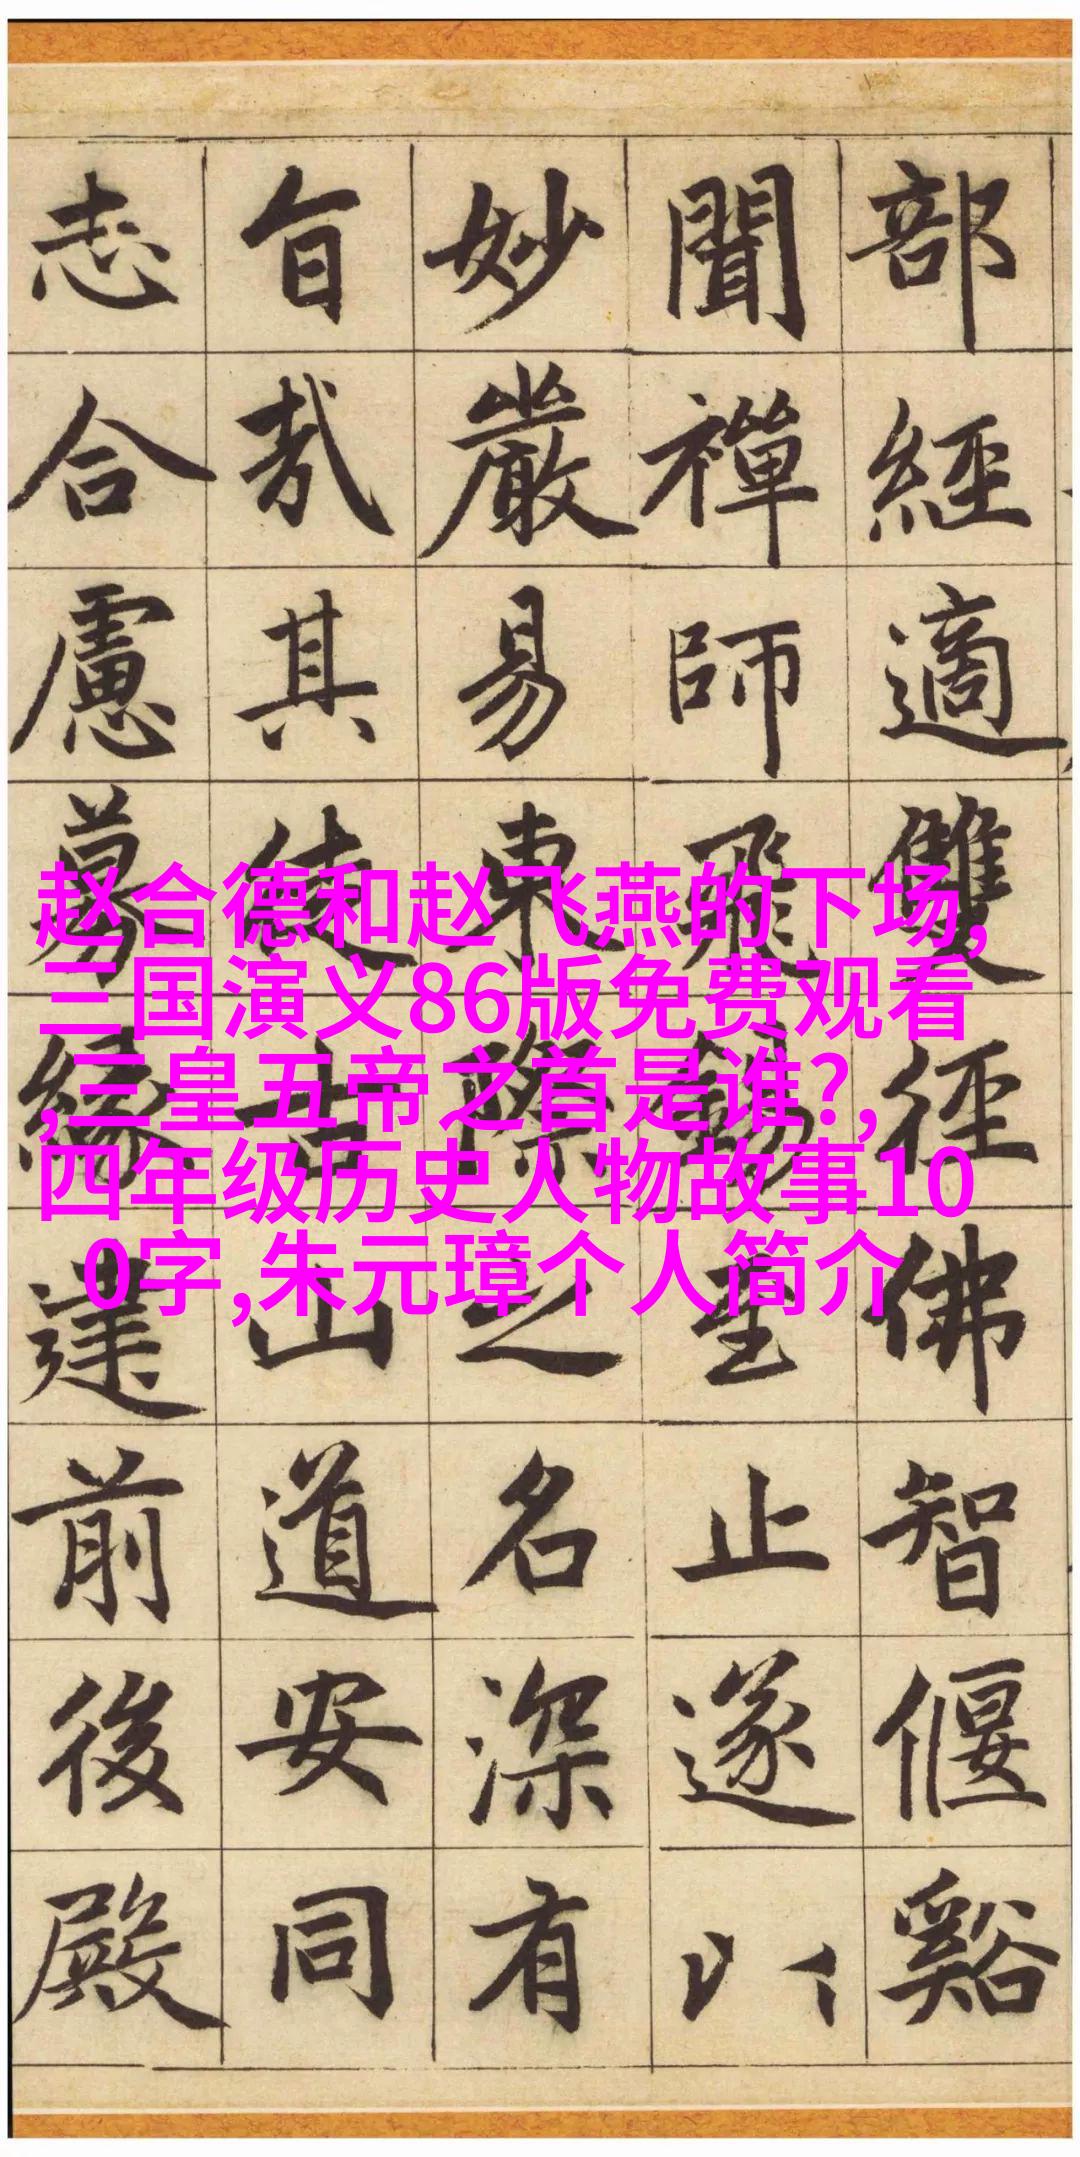 部經適雙徑佛智偃谿
聞禪師飛錫至止遂以
妙嚴易東際之名深有
旨哉其徒古山道安同
志合慮募緣建前後殿
赵合德和赵飞燕的下场,
三国演义86版免费观看
,三皇五帝之首是谁?,
四年级历史人物故事10
0字,朱元璋个人简介